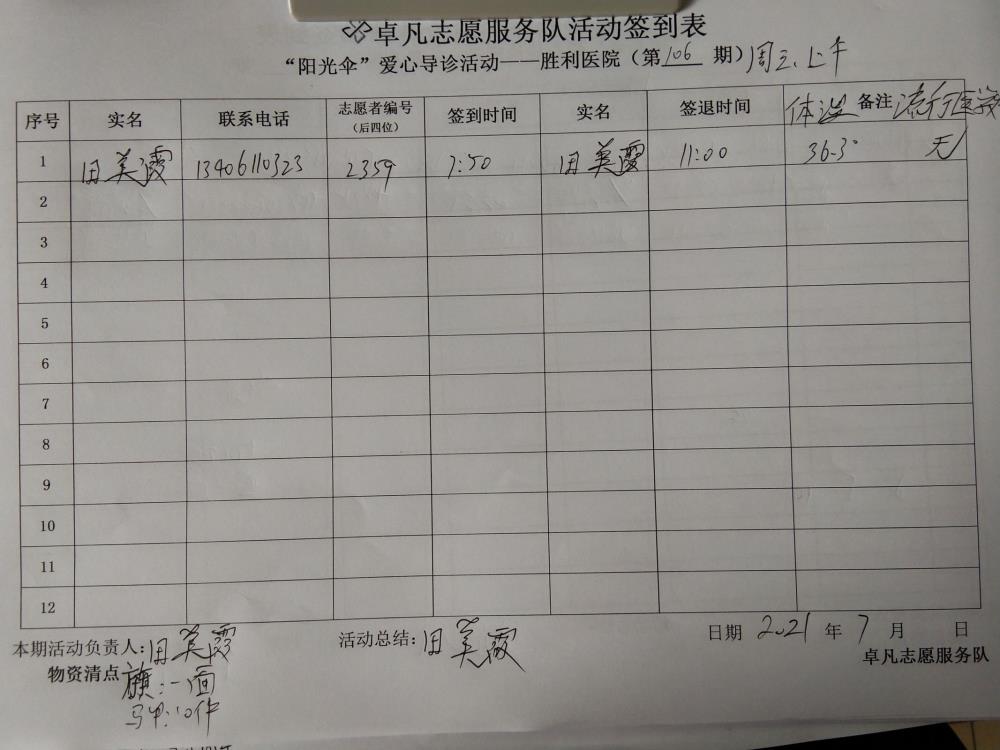 卓凡志愿服务队活动签到表
“阳光伞”爱心导诊活动——胜利医院（第106期）周三、上午
序号 实名 联系电话 志愿者编号（后四位） 签到时间 实名 签退时间 体温 备注 流行医学
1 田美霞 13406110323 2359 7:50 田美霞 11:00 36.3° 无
2
3
4
5
6
7
8
9
10
11
12
本期活动负责人：田美霞 活动总结：田美霞 日期 2021 年 7 月 日
物资清点 旗：一面 卓凡志愿服务队
马甲：10件